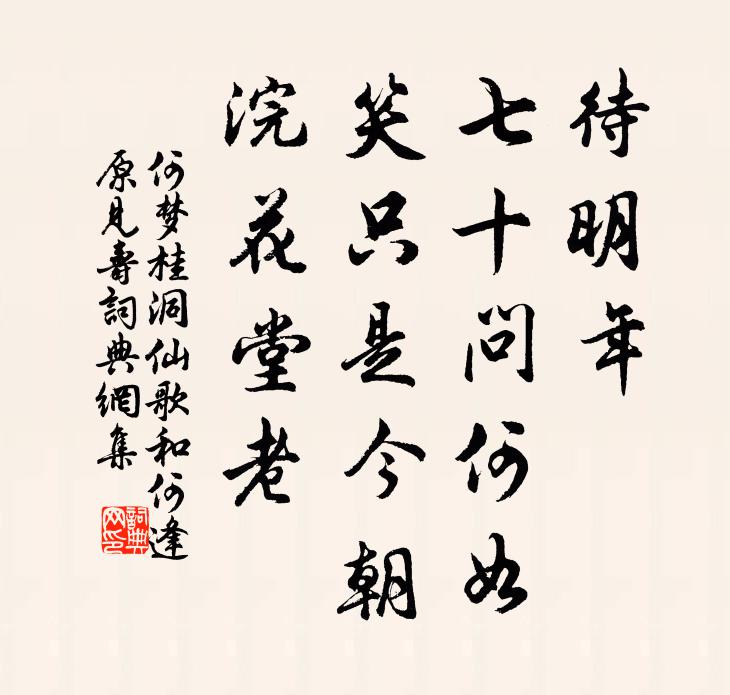 待明年
七十问何如
笑只是今朝
浣花堂老
何梦桂洞仙歌和何逢
原见寿詞典網集
詞典
网印